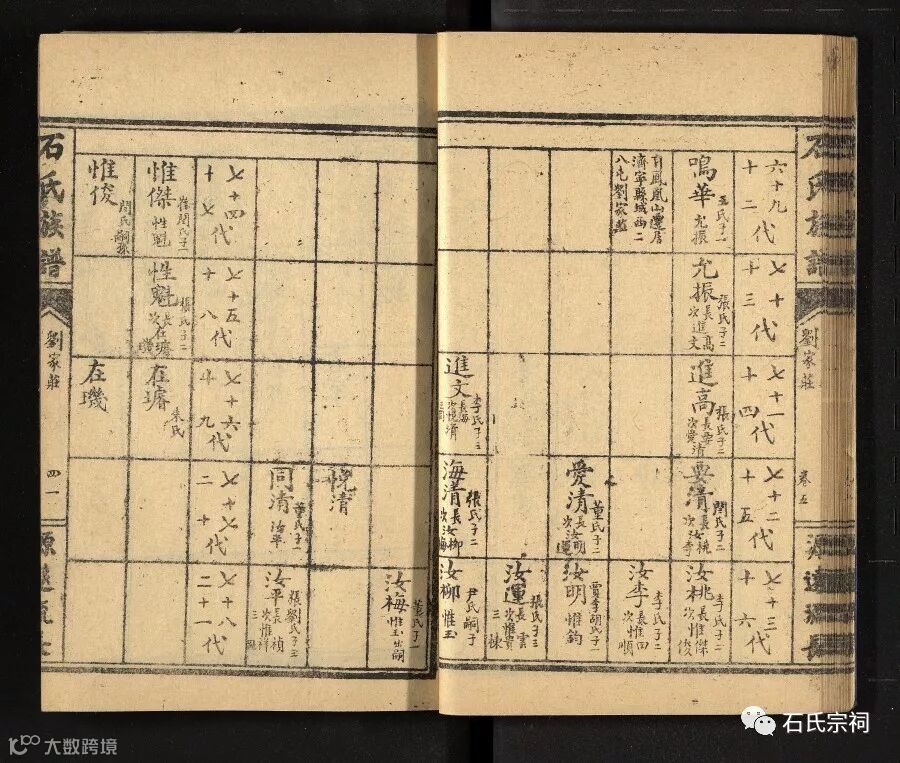 石氏族譜
劉家莊
卷五
源遠流長
六十九代
十二
七十代
十三
七十一代
十四
七十二代
十五
七十三代
十六
鳴華
王氏子一
允振
自鳳凰山遷居
濟寧縣城西二
八屯劉家莊
允振
張氏子二
長進高
次進文
進高
張氏子二
次愛清
進文
李氏子三
清
閆氏子二
長汝桃
次汝李
愛清
董氏子二
長汝明
次汝運
海清
張氏子二
長汝柳
次汝梅
汝桃
李氏子二
長惟傑
次惟俊
汝李
李氏子二
長惟田
次惟順
汝明
賈李胡氏子一
惟鈞
汝運
張氏子三
長惟雲
次惟貴
三惟棟
汝柳
尹氏嗣子
惟玉
汝梅
董氏子一
惟玉出嗣
悅清
同清
董氏子一
汝平
汝平
張劉氏子三
長惟禎
次惟祥
七十四代
十七
七十五代
十八
七十六代
十九
七十七代
二十
七十八代
二十一代
惟傑
崔閆氏子一
性魁
惟俊
閆氏嗣孫
性魁
張氏子二
長在璿
次在璣
在璿
朱氏
在璣
石氏族譜
劉家莊
四一
源遠流長
石氏宗祠
大数跨境